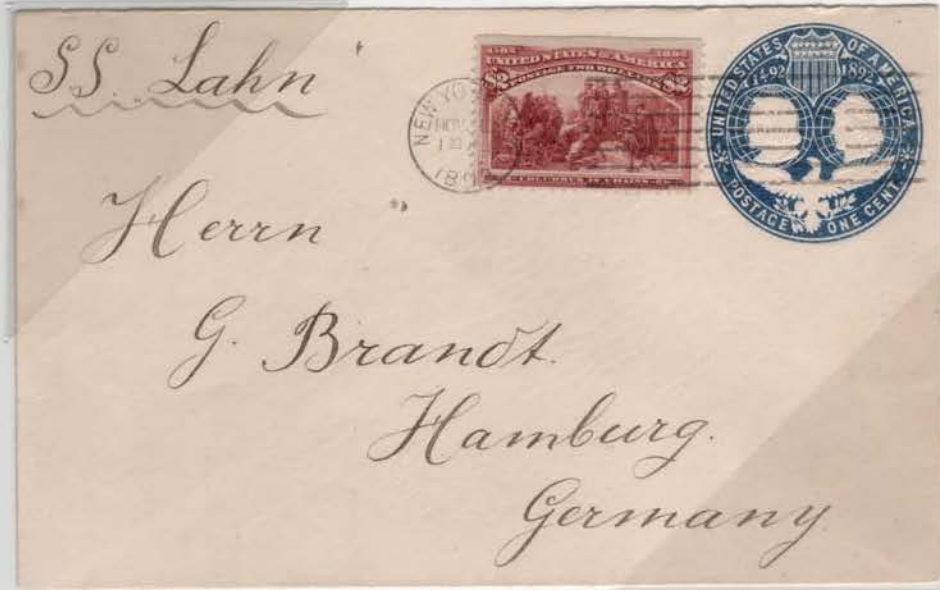 SS. Lahn
1492 1892
UNITED STATES OF AMERICA
POSTAGE TWO DOLLARS
$2 $2
COLUMBUS IN CHAINS
NEW YO
189
UNITED STATES OF AMERICA
1492 1892
POSTAGE ONE CENT.
Herrn
G. Brandt.
Hamburg.
Germany